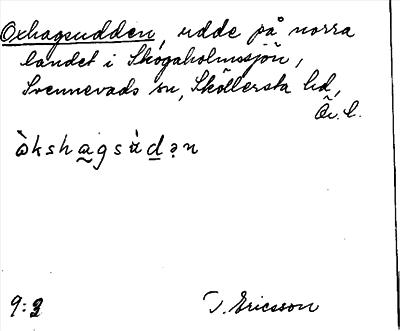 Oxhagsudden, udde på norra
landet i Skogaholmssjön,
Svennevads sn, Sköllersta hd,
Ör. l.
ò̀ksha̰gsὰd̲ən
9:3
T. Ericsson